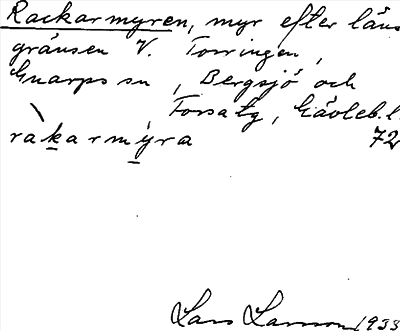 Rackarmyren, myr efter läns
gränsen V. Torringen,
Gnarps sn, Bergsjö och
Forsa tg, Gävleb. l.
rakarmyra 72
Lars Larsson 1933